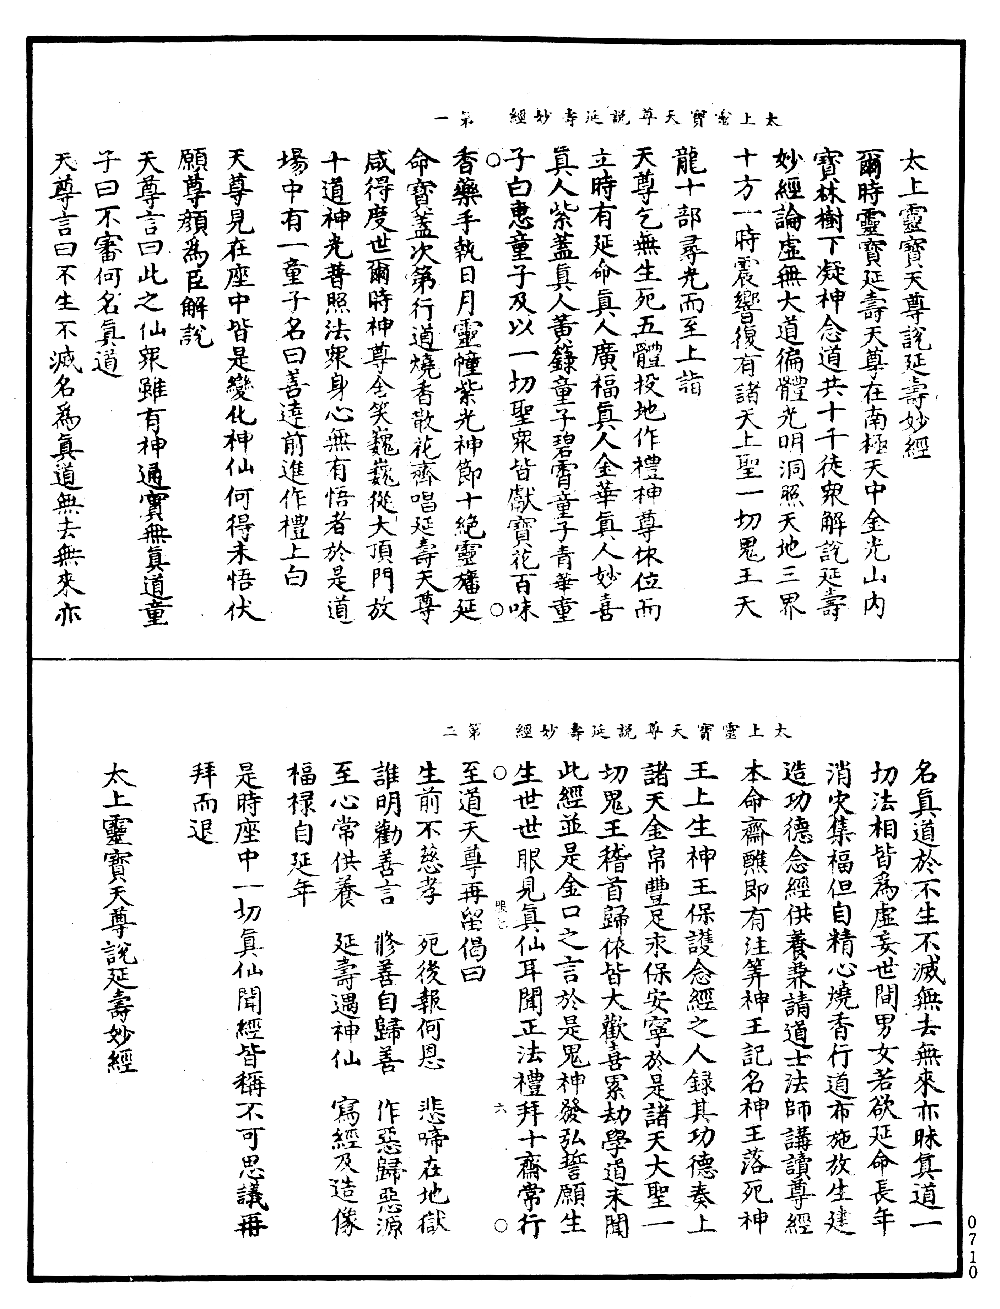 太上靈寶天尊說延壽妙經　第一
太上靈寶天尊說延壽妙經
爾時靈寶延壽天尊在南極天中金光山內
寶林樹下凝神念道共十千徒衆解說延壽
妙經論虛無大道徧體光明洞照天地三界
十方一時震響復有諸天上聖一切鬼王天
龍十部尋光而至上詣
天尊乞無生死五體投地作禮神尊依位而
立時有延命真人廣福真人金華真人妙喜
真人紫蓋真人黃籙童子碧霄童子青華童
子白惠童子及以一切聖衆皆獻寶花百味
香藥手執日月靈幢紫光神節十絕靈旛延
命寶蓋次第行道燒香散花齊唱延壽天尊
咸得度世爾時神尊含笑巍巍從大頂門放
十道神光普照法衆身心無有悟者於是道
場中有一童子名曰善達前進作禮上白
天尊見在座中皆是變化神仙何得未悟伏
願尊顏為臣解說
天尊言曰此之仙衆雖有神通實無真道童
子曰不審何名真道
天尊言曰不生不滅名為真道無去無來亦
太上靈寶天尊說延壽妙經　第二
名真道於不生不滅無去無來亦昧真道一
切法相皆為虛妄世間男女若欲延命長年
消灾集福但自精心燒香行道布施放生建
造功德念經供養兼請道士法師講讀尊經
本命齋醮即有注筭神王記名神王落死神
王上生神王保護念經之人録其功德奏上
諸天金帛豐足永保安寧於是諸天大聖一
切鬼王稽首歸依皆大歡喜累劫學道未聞
此經並是金口之言於是鬼神發弘誓願生
生世世眼見真仙耳聞正法禮拜十齋常行
六
至道天尊再留偈曰
生前不慈孝　死後報何恩　悲啼在地獄
誰明勸善言　修善自歸善　作惡歸惡源
至心常供養　延壽遇神仙　寫經及造像
福祿自延年
是時座中一切真仙聞經皆稱不可思議再
拜而退
太上靈寶天尊說延壽妙經
0710